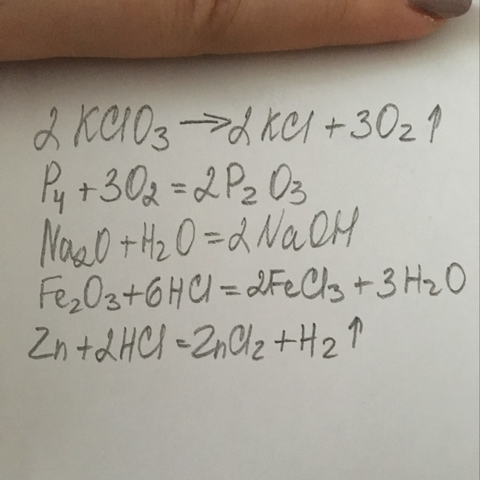 2 KClO₃ → 2 KCl + 3O₂ ↑
P₄ + 3O₂ = 2P₂O₃
Na₂O + H₂O = 2NaOH
Fe₂O₃ + 6HCl = 2FeCl₃ + 3H₂O
Zn + 2HCl = ZnCl₂ + H₂ ↑